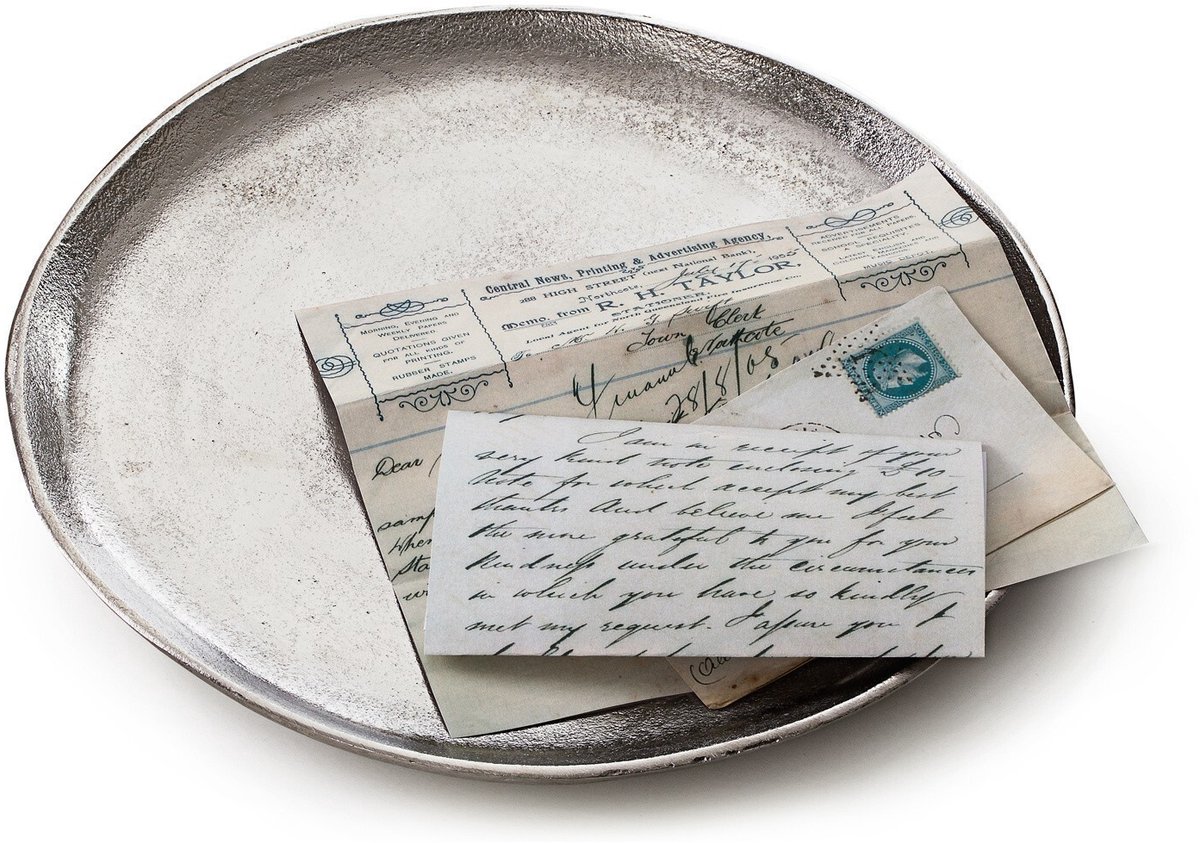 Central News, Printing & Advertising Agency,
288 HIGH STREET (next National Bank),
Northcote,
Memo. from R. H. TAYLOR,
STATIONER,
Local Agent for North Queensland Fire Insurance
To
Town Clerk
Northcote
28/8/05
MORNING, EVENING AND
WEEKLY PAPERS
DELIVERED
QUOTATIONS GIVEN
FOR ALL KINDS OF
PRINTING.
RUBBER STAMPS
MADE.
ADVERTISEMENTS
RECEIVED FOR ALL PAPERS.
SCHOOL REQUISITES
A SPECIALITY
LATEST ENGLISH AND
MUSIC DEPÔT.
Dear
When
I am in receipt of your
very kind note enclosing £10.
Note for which accept my best
thanks And believe me I feel
the more grateful to you for your
Kindness under the circumstances
in which you have so kindly
met my request. I assure you I